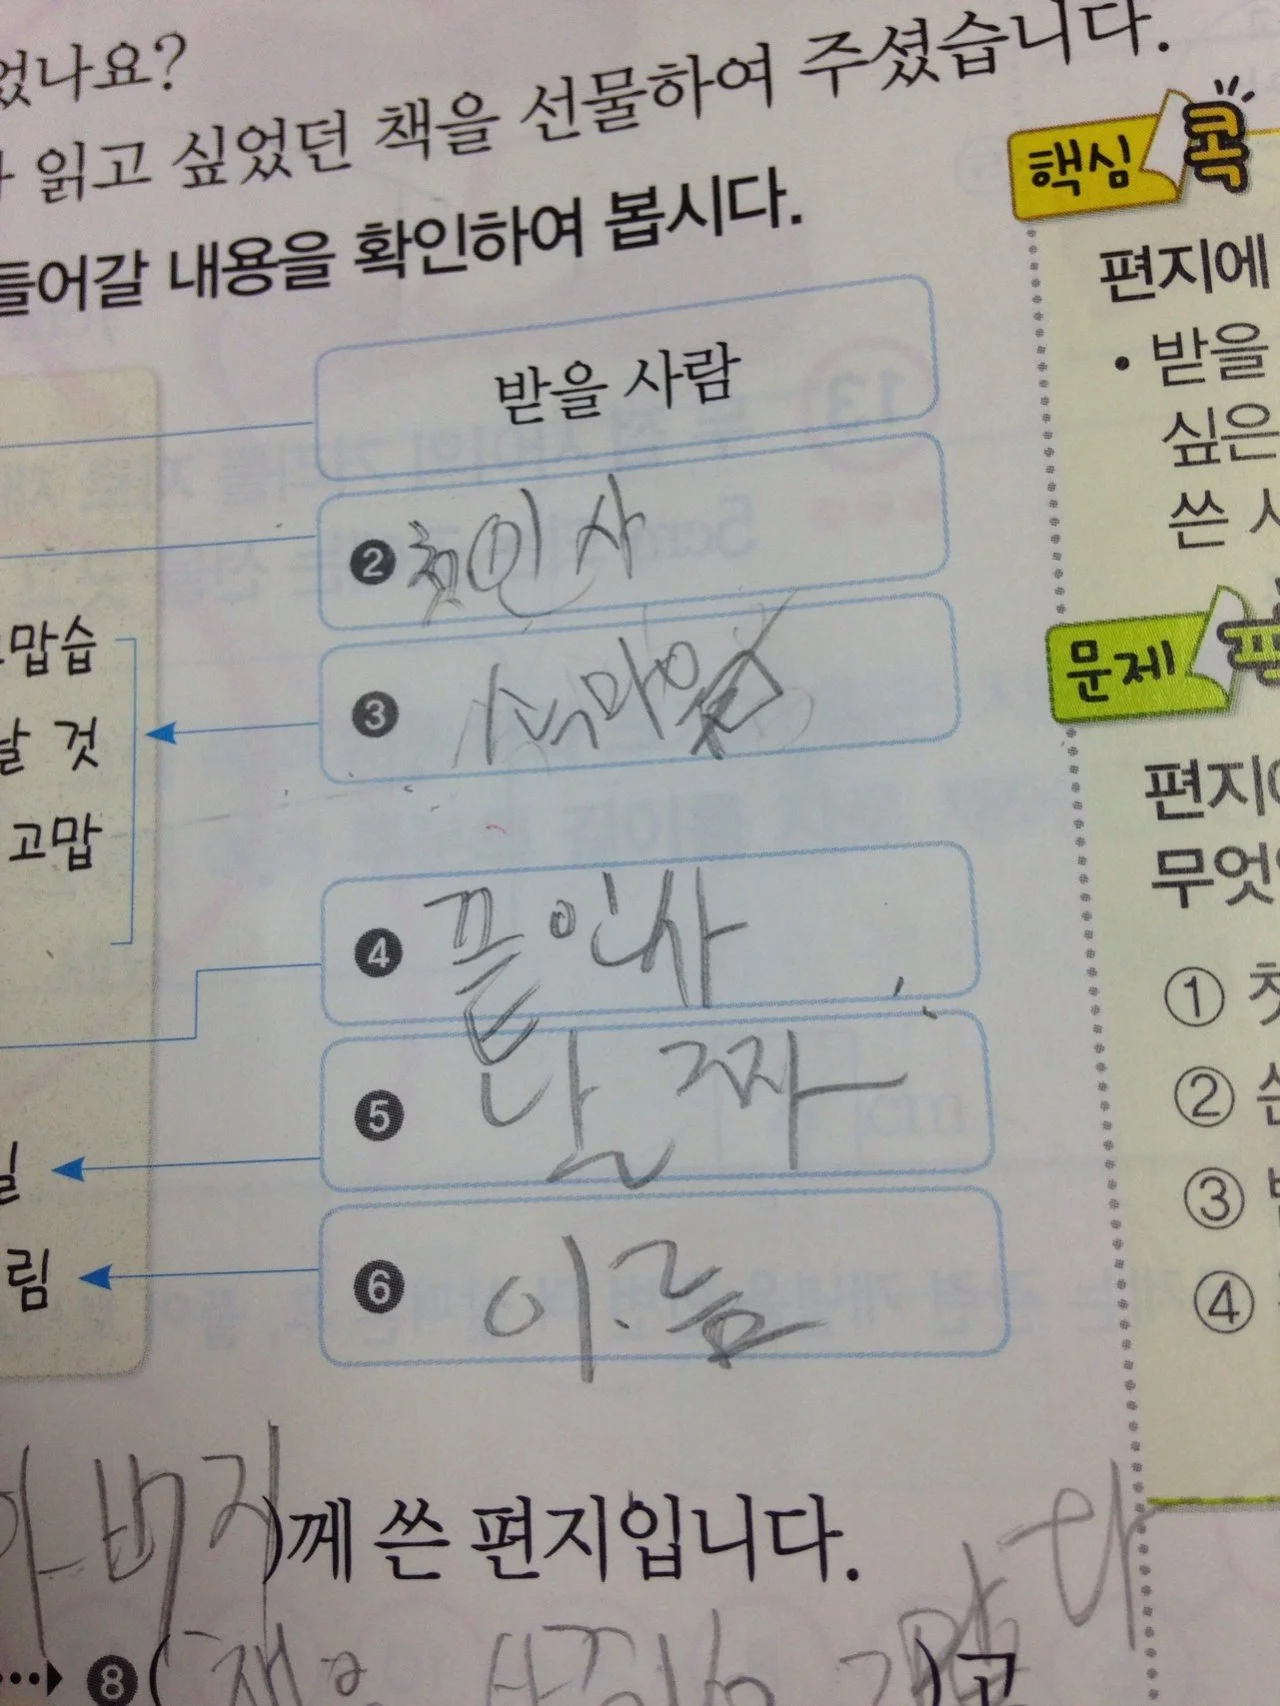 었나요?
읽고 싶었던 책을 선물하여 주셨습니다.
들어갈 내용을 확인하여 봅시다.
받을 사람
❷ 첫인사
❸
❹ 끝인사
❺ 날짜
❻ 이름
맙습
날 것
고맙
일
림
아버지)께 쓴 편지입니다.
❽ ( 책을 고
다
핵심 콕
편지에
• 받을
싶은
쓴
문제
편지에
무엇
① 첫
② 쓴
③
④